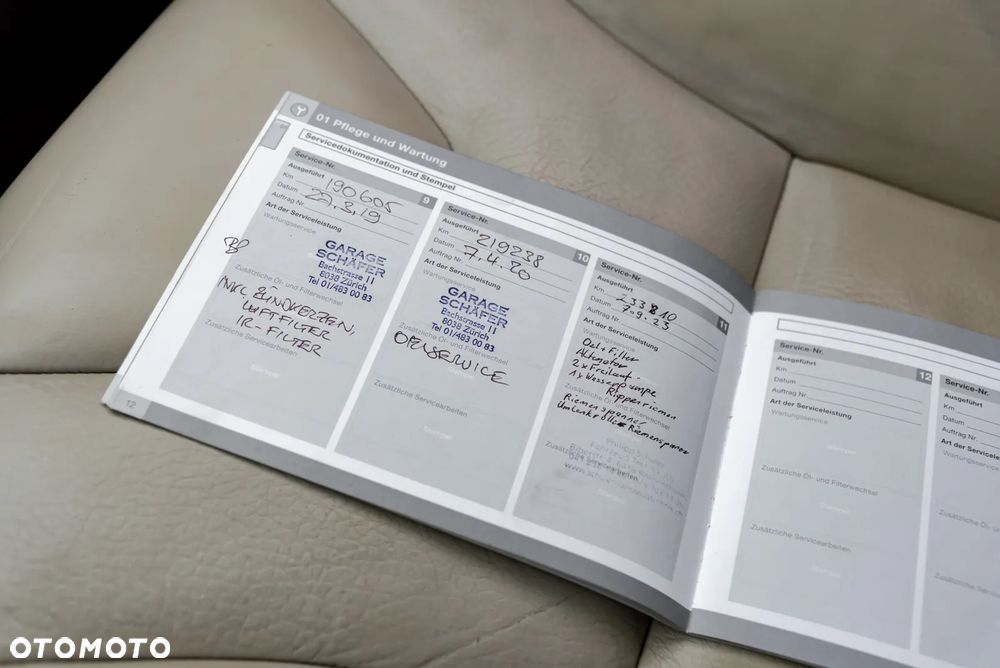 01 Pflege und Wartung
Servicedokumentation und Stempel
Service-Nr. 9
Ausgeführt
Km 190605
Datum 27.3.19
Auftrag Nr.
Art der Serviceleistung
Wartungsservice
GARAGE
SCHÄFER
Bachstrasse 11
8038 Zürich
Tel 01/483 00 83
Zusätzliche Öl- und Filterwechsel
INKL ZÜNDKERZEN,
LUFTFILTER
IR-FILTER
Zusätzliche Servicearbeiten
Stempel
12
Service-Nr. 10
Ausgeführt
Km 219238
Datum 7.4.20
Auftrag Nr.
Art der Serviceleistung
Wartungsservice
GARAGE
SCHÄFER
Bachstrasse 11
8038 Zürich
Tel 01/483 00 83
Zusätzliche Öl- und Filterwechsel
OELSERVICE
Zusätzliche Servicearbeiten
Stempel
Service-Nr. 11
Ausgeführt
Km 233810
Datum 7-9-23
Auftrag Nr.
Art der Serviceleistung
Oel+Filter
2x Freilauf-
1x Wasserpumpe
Rippenriemen
Zusätzliche Öl- und Filterwechsel
Riemenspanner
Zusätzliche Servicearbeiten
Service-Nr. 12
Ausgeführt
Km
Datum
Auftrag Nr.
Art der Serviceleistung
Wartungsservice
Stempel
Zusätzliche Öl- und Filterwechsel
Stempel
Zusätzliche Servicearbeiten
Stempel
Service-Nr.
Ausgeführt
Km
Datum
Auftrag Nr.
Art der Serviceleis
Wartungsservice
Zusätzliche Öl- und
Zusätzliche Servic
OTOMOTO